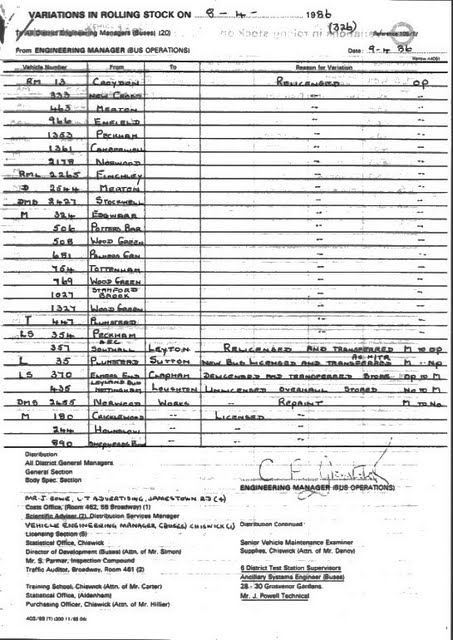 VARIATIONS IN ROLLING STOCK ON 8 - 4 - 1986
(326)
To All District Engineering Managers (Buses) (20)
From ENGINEERING MANAGER (BUS OPERATIONS) Date: 9-4 86
Vehicle Number From To Reason for Variation
RM 13 CROYDON RELICENSED OP
333 NEW CROSS -"- --
463 MERTON -"- --
966 ENFIELD -"- --
1353 PECKHAM -"- --
1361 CAMBERWELL -"- --
2178 NORWOOD -"- --
RML 2265 FINCHLEY -"- --
D 2544 MERTON -"- --
DMS 2427 STOCKWELL -"- --
M 324 EDGWARE -"- --
506 POTTERS BAR -"- --
508 WOOD GREEN -"- --
681 PALMERS GRN -"- --
754 TOTTENHAM -"- --
769 WOOD GREEN -"- --
1027 STAMFORD BROOK -"- --
1327 WOOD GREEN -"- --
T 447 PLUMSTEAD -"- --
LS 354 PECKHAM -"- --
357 SOUTHALL LEYTON RELICENSED AND TRANSFERRED M TO OP
L 35 PLUMSTEAD SUTTON NEW BUS LICENSED AND TRANSFERRED
LS 370 ELMERS END CLAPHAM DELICENSED AND TRANSFERRED STORE OP TO M
435 LEYLAND BUS NOTTINGHAM LOUGHTON UNLICENSED OVERHAUL STORED NO TO M
DMS 2455 NORWOOD WORKS -- REPAINT M TO NO
M 180 CRICKLEWOOD -- LICENSED --
244 HOUNSLOW -- -- --
890 SHEPHERDS BUSH -- -- --
Distribution
All District General Managers
General Section
Body Spec. Section
ENGINEERING MANAGER (BUS OPERATIONS)
MR J. ROWE, L T ADVERTISING, JAMESTOWN RD (4)
Costs Office, (Room 462, 55 Broadway) (1)
Scientific Adviser (2) Distribution Services Manager
VEHICLE ENGINEERING MANAGER (BUSES) CHISWICK (1) Distribution Continued
Licensing Section (5)
Statistical Office, Chiswick Senior Vehicle Maintenance Examiner
Director of Development (Buses) (Attn. of Mr. Simon) Supplies, Chiswick (Attn. of Mr. Dancy)
Mr. S. Parmar, Inspection Compound
Traffic Auditor, Broadway, Room 461 (2) 6 District Test Station Supervisors
Ancillary Systems Engineer (Buses)
Training School, Chiswick (Attn. of Mr. Carter) 28 - 30 Grosvenor Gardens.
Statistical Office, (Aldenham) Mr. J. Powell Technical
Purchasing Officer, Chiswick (Attn. of Mr. Hillier)